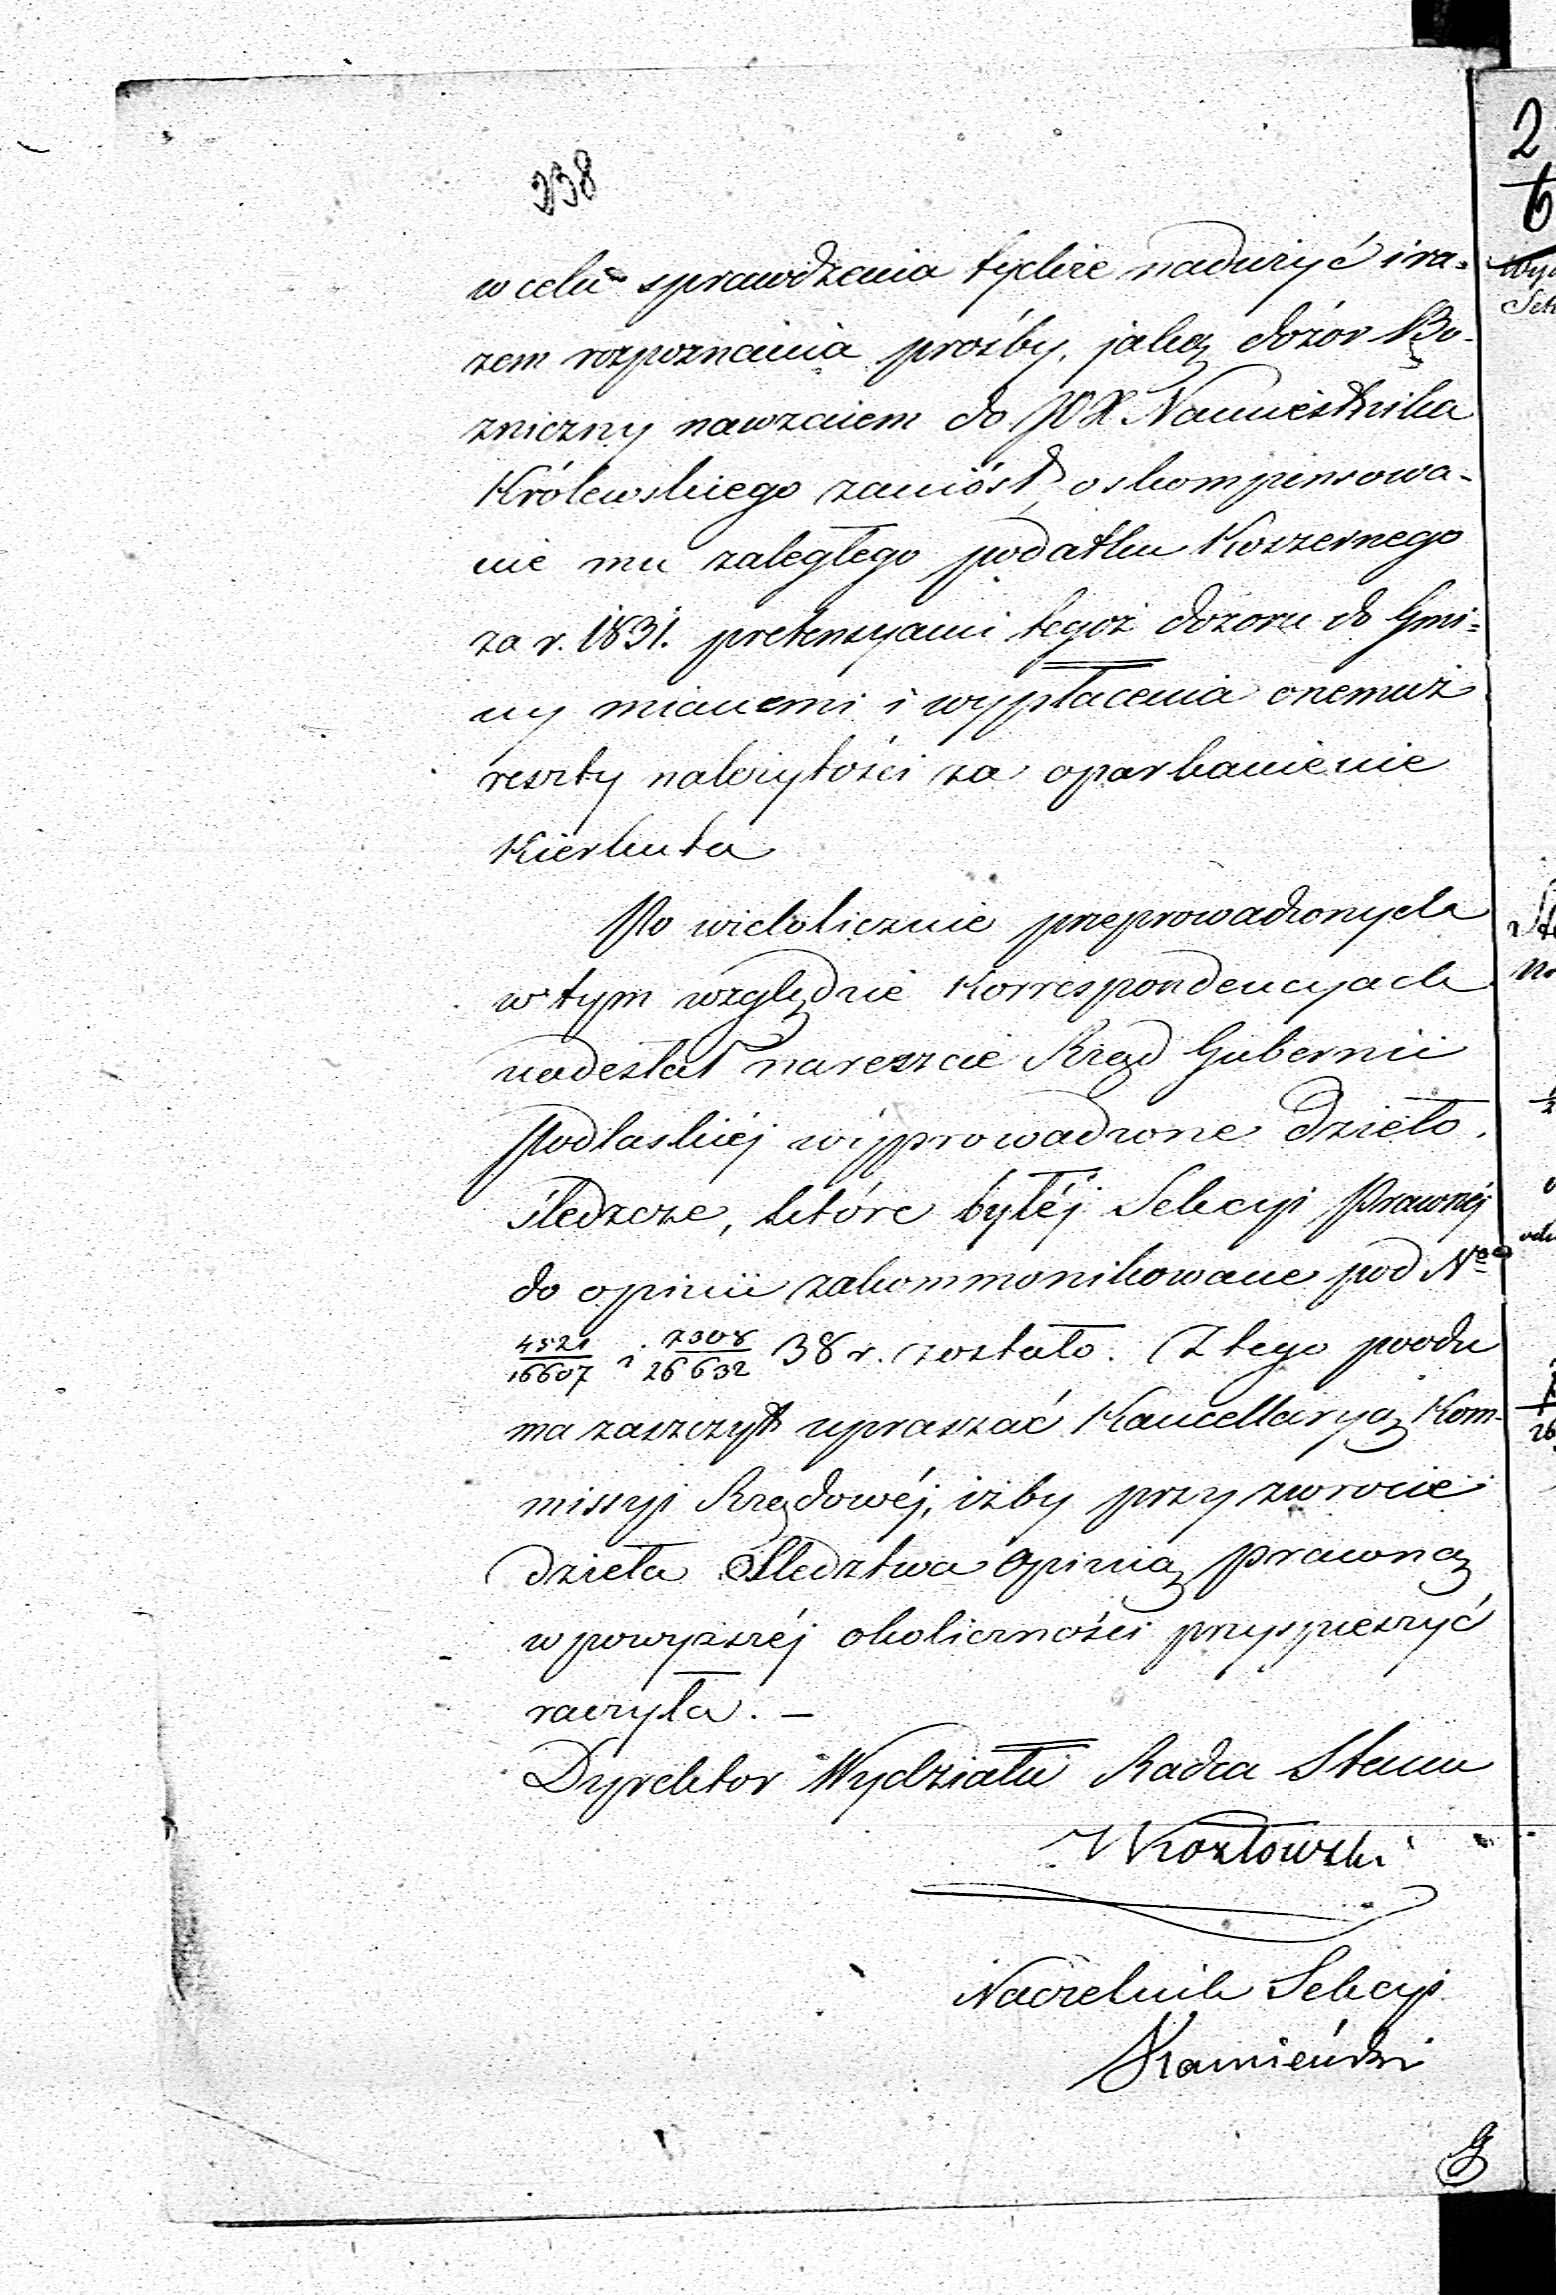 238
w celu sprawdzenia tychże nadużyć i ra=
zem rozpoznania prośby, jaką dozór Bo-
zniczny nawzaiem do JOX Namiestnika
Królewskiego zaniósł, o skompensowa-
nie mu zaległego podatku Koszernego
za r. 1831. pretensyami tegoż dozoru do Gmi=
ny mianemi i wypłacenia onemuż
reszty należytości za oparkanienie
Kierkuta
Po wielolicznie przeprowadzonych
w tym względzie Korrespondencyach
nadesłał nareszcie Rząd Gubernii
Podlaskiéj wyprowadzone dzieło
śledzcze, które byłéj Sekcyi Prawnéj
do opinii zakommonikowane pod Nr
4521/16607 i 7308/26632 38 r. zostało. Z tego poodu
ma zaszczyt upraszać Kancellaryą Kom-
missyi Rządowéj, iżby przy zwrocie
dzieła Śledztwa opinią prawną
w powyższéj okoliczności przyspieszyć
raczyła. —
Dyrektor Wydziału Radca Stanu
Kozłowski
Naczelnik Sekcyi
Kamieński